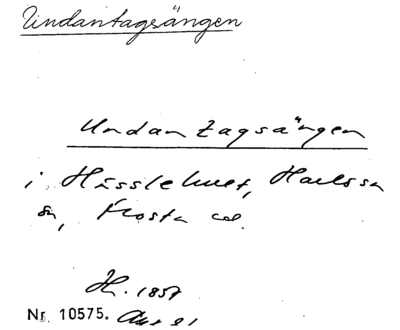 Undantagsängen
Undantagsängen
i Hässlehult, Harlösa
sn, Frosta hd.
H. 1857
Nr. 10575.